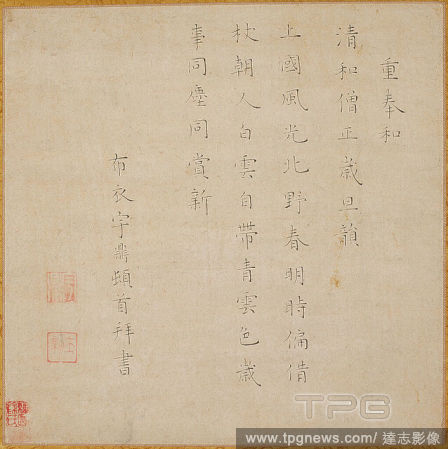 重奉和
清和僧正歲旦韻
上國風光北野春明時偏借
杖朝人白雲自帶青雲色歲
事同塵同賞新
布衣宇鼎頓首拜書
TPG
www.tpgnews.com/ 達志影像